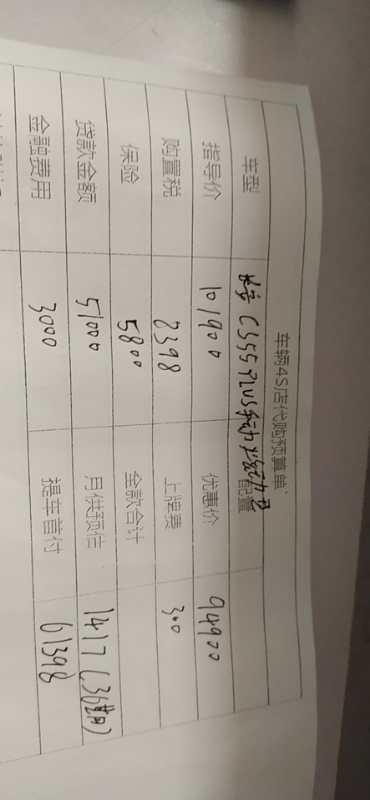 车辆4S店代购预算单
车型 长安 CS55 PLUS 手动 配置
指导价 101900 优惠价 94900
购置税 8398 上牌费 300
保险 5800 全款合计
贷款金额 51000 月供预估 1417 (36期)
金融费用 3000 提车首付 61398